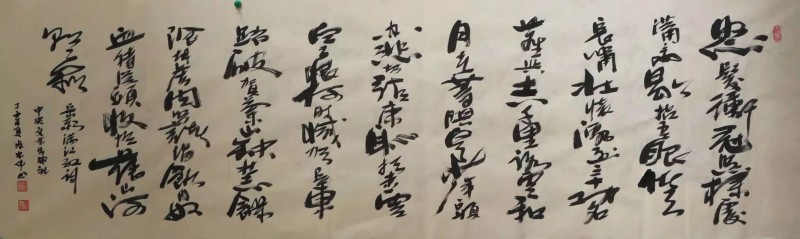 怒髮衝冠憑欄處
瀟瀟雨歇抬望眼仰天
長嘯壯懷激烈三十功名
塵與土八千里路雲和
月莫等閒白了少年頭
空悲切靖康恥猶未雪
臣子恨何時滅駕長車
踏破賀蘭山缺壯志饑
餐胡虜肉笑談渴飲匈奴
血待從頭收拾舊山河
朝天闕
岳飛滿江紅詞
丁酉夏